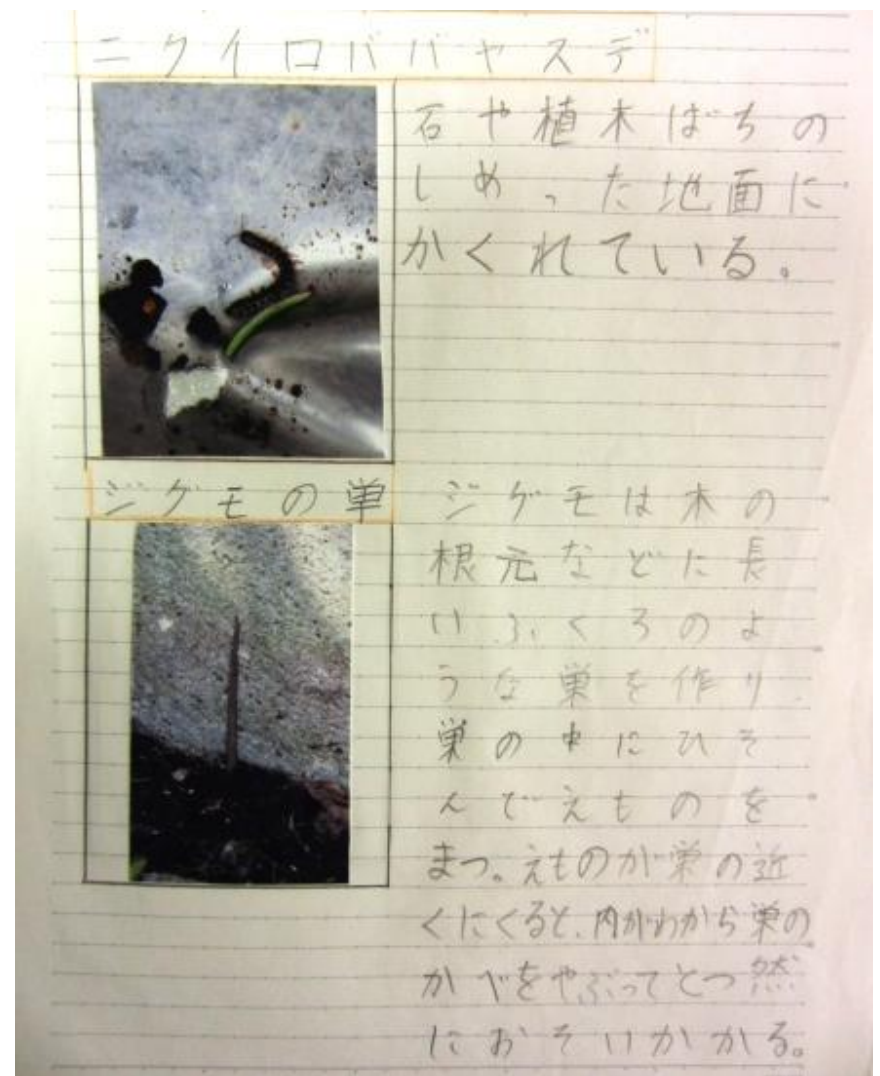 ニクイロババヤスデ
石や植木ばちの
しめった地面に
かくれている。
ジグモの巣
ジグモは木の
根元などに長
いふくろのよ
うな巣を作り
巣の中にひそ
んでえものを
まつ。えものが巣の近
くにくると、内がわから巣の
かべをやぶってとつ然
におそいかかる。